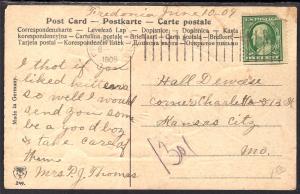 Fredonia June 10-09
Post Card - Postkarte - Carte postale
Correspondenzkarte — Levelező Lap — Dopisnice — Dopisnica
Korespondencyjna — Cartolina postale — Briefkaart — Brefkort
Tarjeta postal — Korrespondenzkarte
1909
I that if you
liked kittens
so well I would
send you some
be a good boy
& take care of
them
Mrs. P.J. Thomas
Hall Dewise
corner Charlotte & 13 St
Kansas City
Mo.
Made in Germany
299.